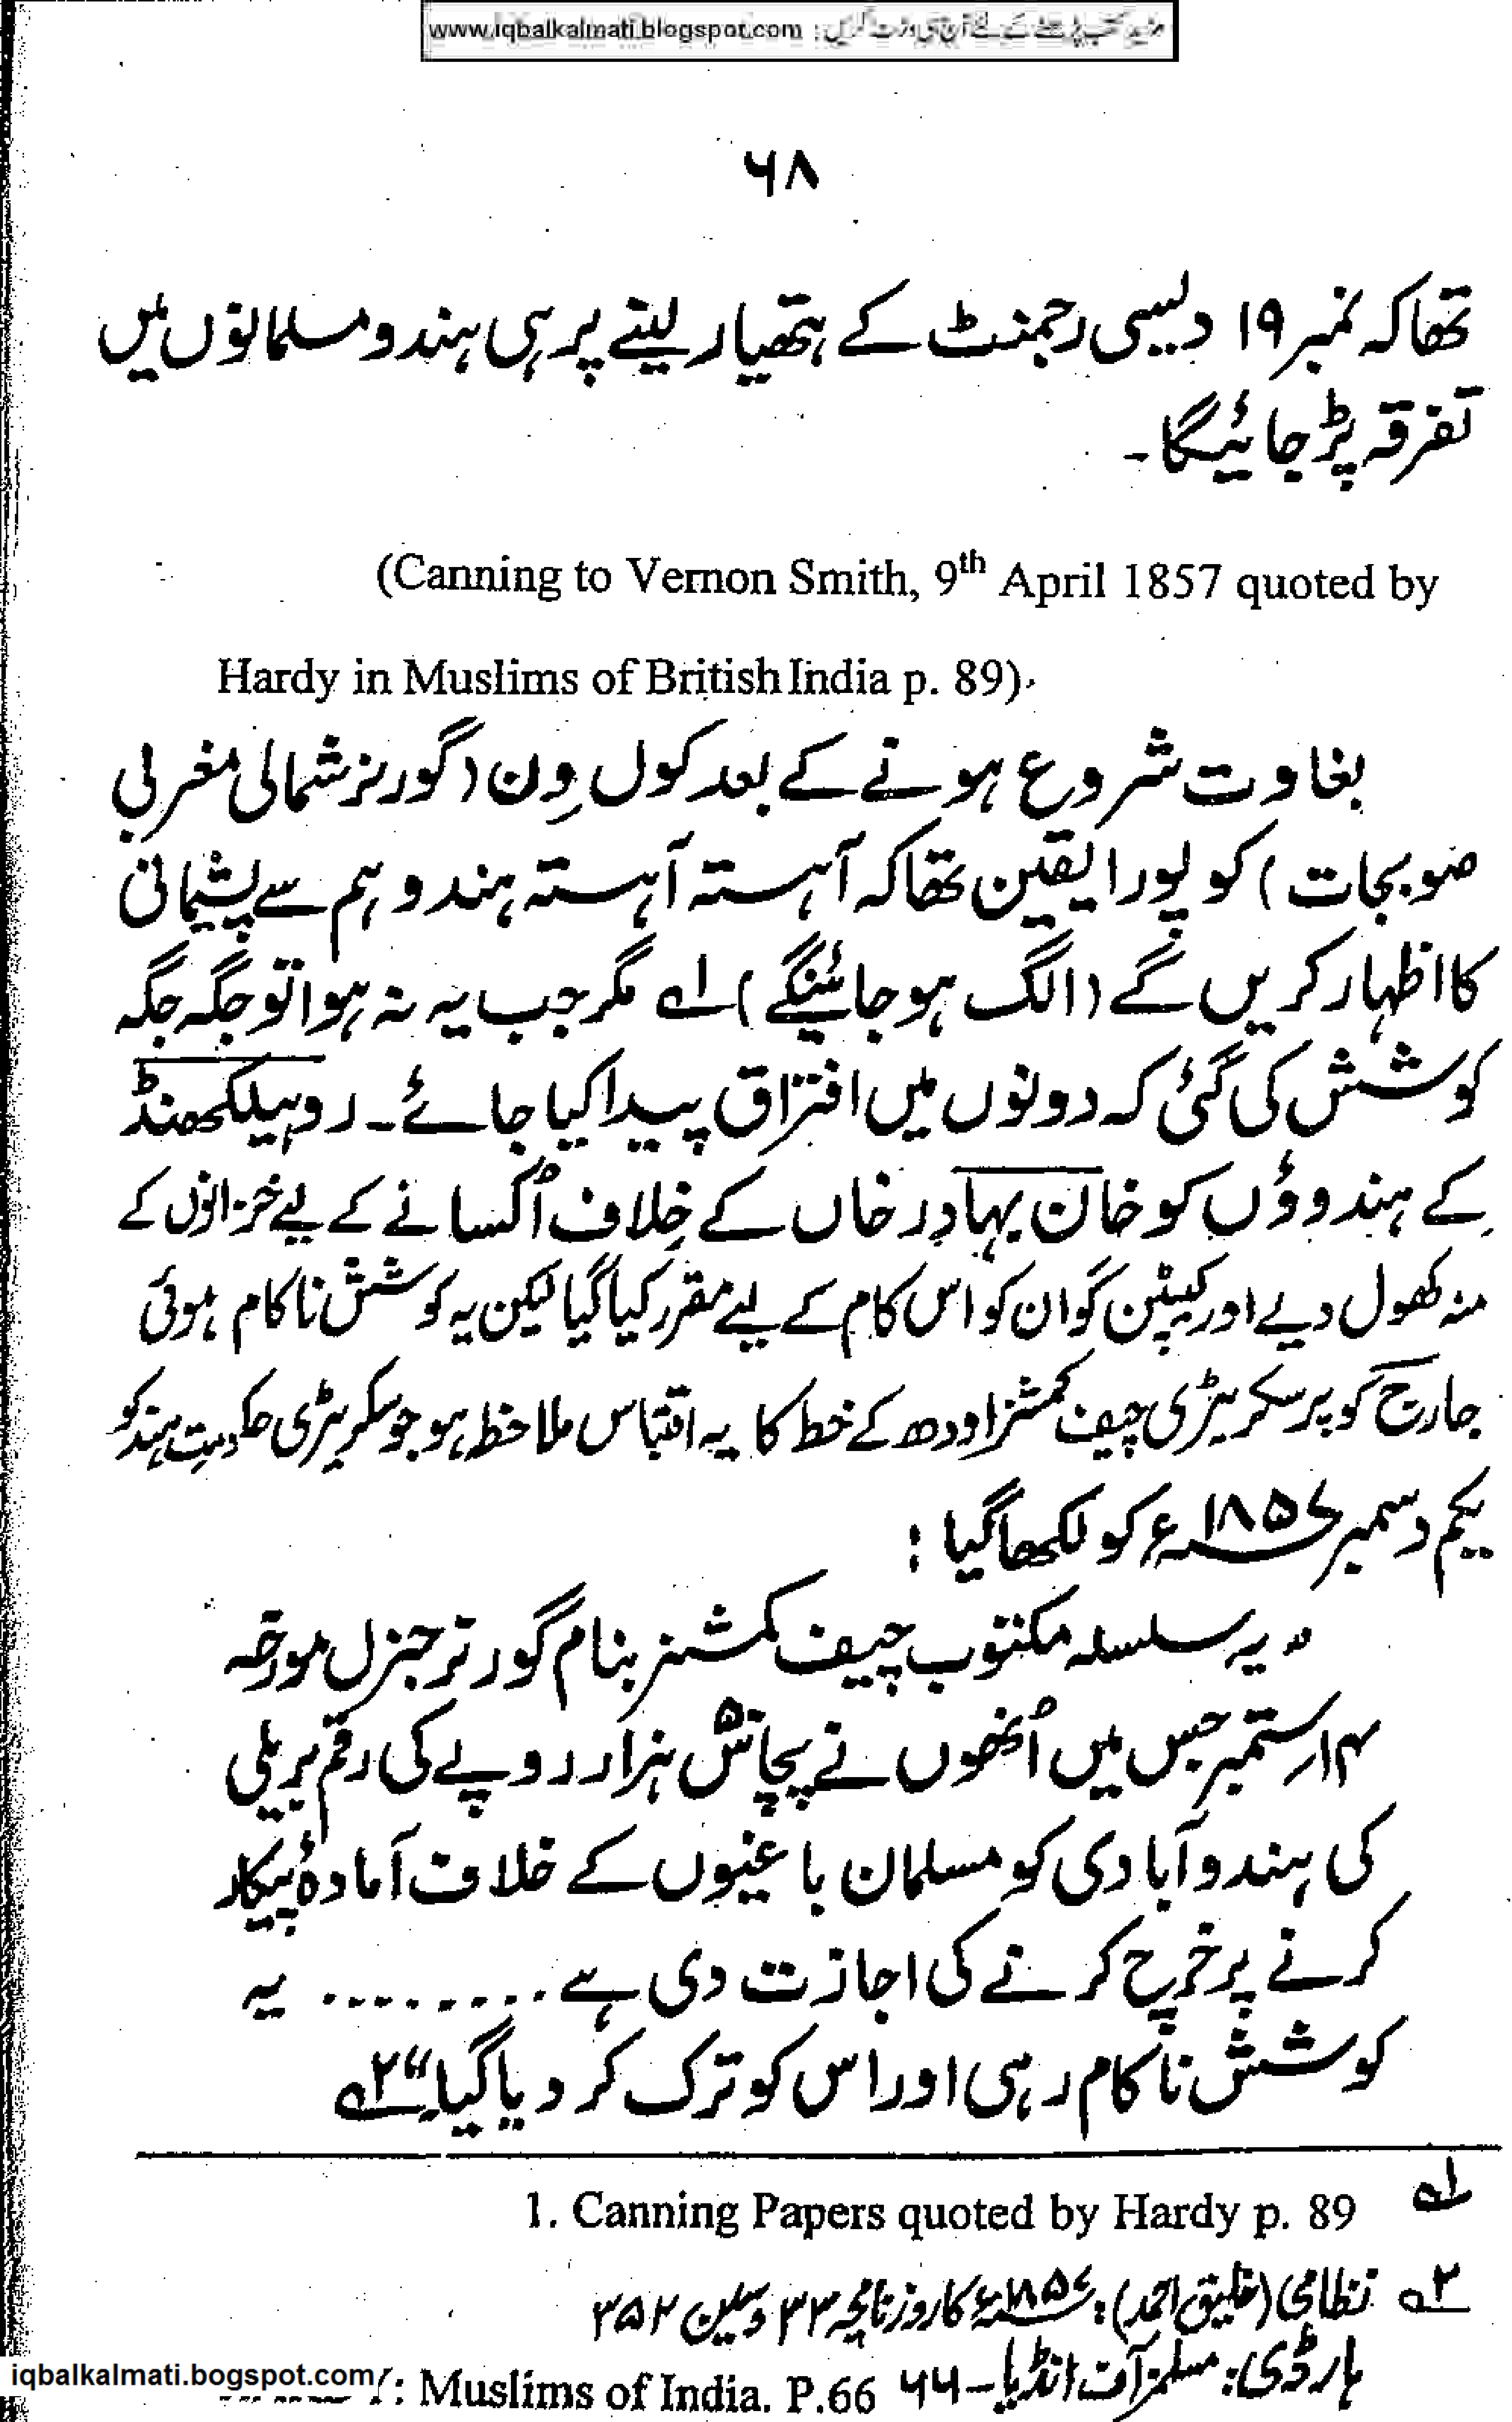 www.iqbalkalmati.blogspot.com : مزید کتب پڑھنے کے لئے آج ہی وزٹ کریں
۶۸
تھا کہ نمبر ۱۹ دیسی رجمنٹ کے ہتھیار لینے پر ہی ہندو مسلمانوں میں
تفرقہ پڑ جائیگا۔
(Canning to Vernon Smith, 9th April 1857 quoted by
Hardy in Muslims of British India p. 89)
بغاوت شروع ہونے کے بعد کول وِن (گورنر شمالی مغربی
صوبجات) کو پورا یقین تھا کہ آہستہ آہستہ ہندو ہم سے پشیمانی
کا اظہار کریں گے (الگ ہو جائینگے) ۱ے مگر جب یہ نہ ہوا تو جگہ جگہ
کوشش کی گئی کہ دونوں میں افتراق پیدا کیا جائے۔ روہیلکھنڈ
کے ہندوؤں کو خان بہادر خاں کے خِلاف اُکسانے کے لیے خزانوں کے
منہ کھول دیے اور کیپٹن گوان کو اس کام کے لیے مقرر کیا گیا لیکن یہ کوشش ناکام ہوئی
جارج کوپر سکریٹری چیف کمشنر اودھ کے خط کا یہ اقتباس ملاحظہ ہو جو سکریٹری حکومتِ ہند کو
یکم دسمبر ۱۸۵۷ء کو لکھا گیا :
”یہ سلسلہ مکتوب چیف کمشنر بنام گورنر جنرل مورخہ
۱۴ ستمبر جس میں اُنھوں نے پچاس ہزار روپے کی رقم بریلی
کی ہندو آبادی کو مسلمان باغیوں کے خلاف آمادۂ پیکار
کرنے پر خرچ کرنے کی اجازت دی ہے ......... یہ
کوشش ناکام رہی اور اس کو ترک کر دیا گیا۔“ ۲ے
۱ے 1. Canning Papers quoted by Hardy p. 89
۲ے نظامی (خلیق احمد): ۱۸۵۷ء کا روزنامچہ ۳۳ وسلین ۳۵۲
ہارڈی: مسلمز آف انڈیا - ۶۶ : Muslims of India. P.66
iqbalkalmati.bogspot.com